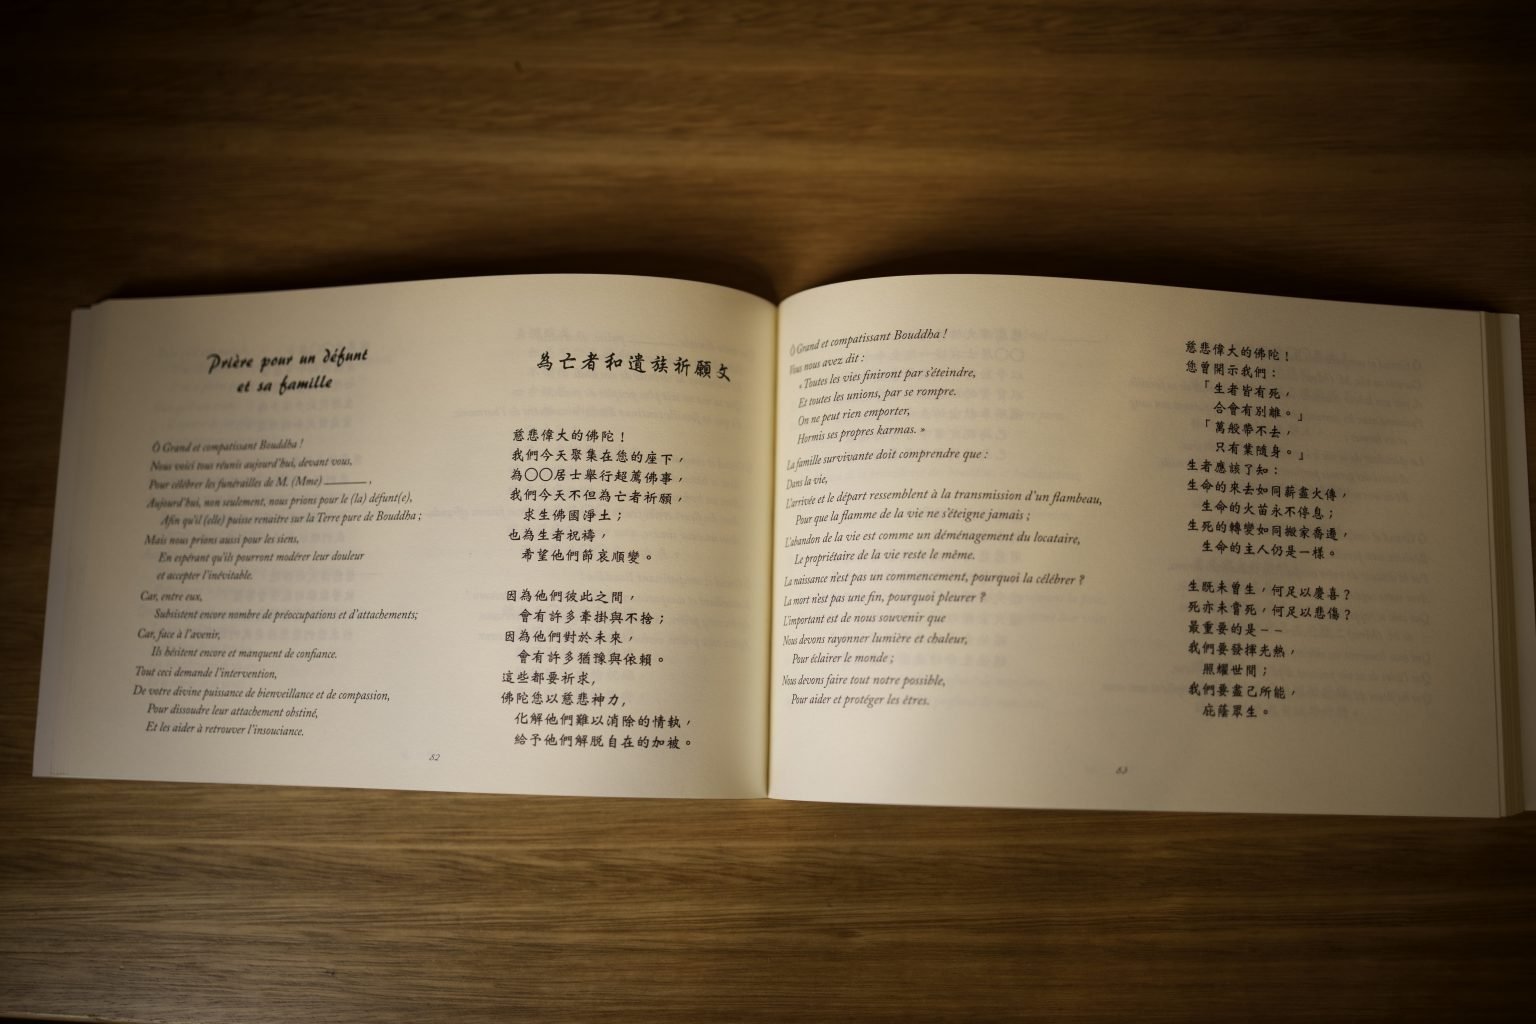 Prière pour un défunt
et sa famille
Ô Grand et compatissant Bouddha !
Nous voici tous réunis aujourd'hui, devant vous,
Pour célébrer les funérailles de M. (Mme) ________ ,
Aujourd'hui, non seulement, nous prions pour le (la) défunt(e),
Afin qu'il (elle) puisse renaitre sur la Terre pure de Bouddha ;
Mais nous prions aussi pour les siens,
En espérant qu'ils pourront modérer leur douleur
et accepter l'inévitable.
Car, entre eux,
Subsistent encore nombre de préoccupations et d'attachements;
Car, face à l'avenir,
Ils hésitent encore et manquent de confiance.
Tout ceci demande l'intervention,
De votre divine puissance de bienveillance et de compassion,
Pour dissoudre leur attachement obstiné,
Et les aider à retrouver l'insouciance.
為亡者和遺族祈願文
慈悲偉大的佛陀！
我們今天聚集在您的座下，
為〇〇居士舉行超薦佛事，
我們今天不但為亡者祈願，
求生佛國淨土；
也為生者祝禱，
希望他們節哀順變。
因為他們彼此之間，
會有許多牽掛與不捨；
因為他們對於未來，
會有許多猶豫與依賴。
這些都要祈求，
佛陀您以慈悲神力，
化解他們難以消除的情執，
給予他們解脫自在的加被。
82
Ô Grand et compatissant Bouddha !
Vous nous avez dit :
« Toutes les vies finiront par s'éteindre,
Et toutes les unions, par se rompre.
On ne peut rien emporter,
Hormis ses propres karmas. »
La famille survivante doit comprendre que :
Dans la vie,
L'arrivée et le départ ressemblent à la transmission d'un flambeau,
Pour que la flamme de la vie ne s'éteigne jamais ;
L'abandon de la vie est comme un déménagement du locataire,
Le propriétaire de la vie reste le même.
La naissance n'est pas un commencement, pourquoi la célébrer ?
La mort n'est pas une fin, pourquoi pleurer ?
L'important est de nous souvenir que
Nous devons rayonner lumière et chaleur,
Pour éclairer le monde ;
Nous devons faire tout notre possible,
Pour aider et protéger les êtres.
慈悲偉大的佛陀！
您曾開示我們：
「生者皆有死，
合會有別離。」
「萬般帶不去，
只有業隨身。」
生者應該了知：
生命的來去如同薪盡火傳，
生命的火苗永不停息；
生死的轉變如同搬家喬遷，
生命的主人仍是一樣。
生既未曾生，何足以慶喜？
死亦未嘗死，何足以悲傷？
最重要的是－－
我們要發揮光熱，
照耀世間；
我們要盡己所能，
庇蔭眾生。
83